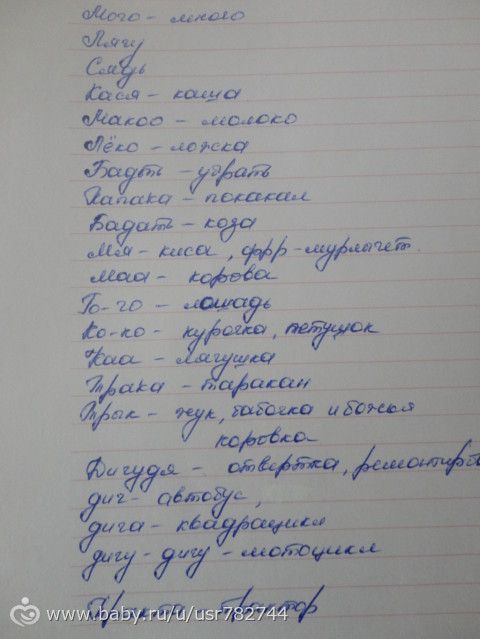 Мого - много
Лягу
Сядь
Кася - каша
Макоо - молоко
Лёко - ложка
Бадть - убрать
Капака - покакал
Бадать - коза
Мя - киса, фрр - мурлычет.
Маа - корова
Го-го - лошадь
Ко-ко - курочка, петушок
Каа - лягушка
Трака - таракан
Трык - жук, бабочка и божья
коровка
Дигудя - отвертка, ремонтиров
диг - автобус,
дига - квадроцикл
дигу-дигу - мотоцикл
трактор
www.baby.ru/u/usr782744